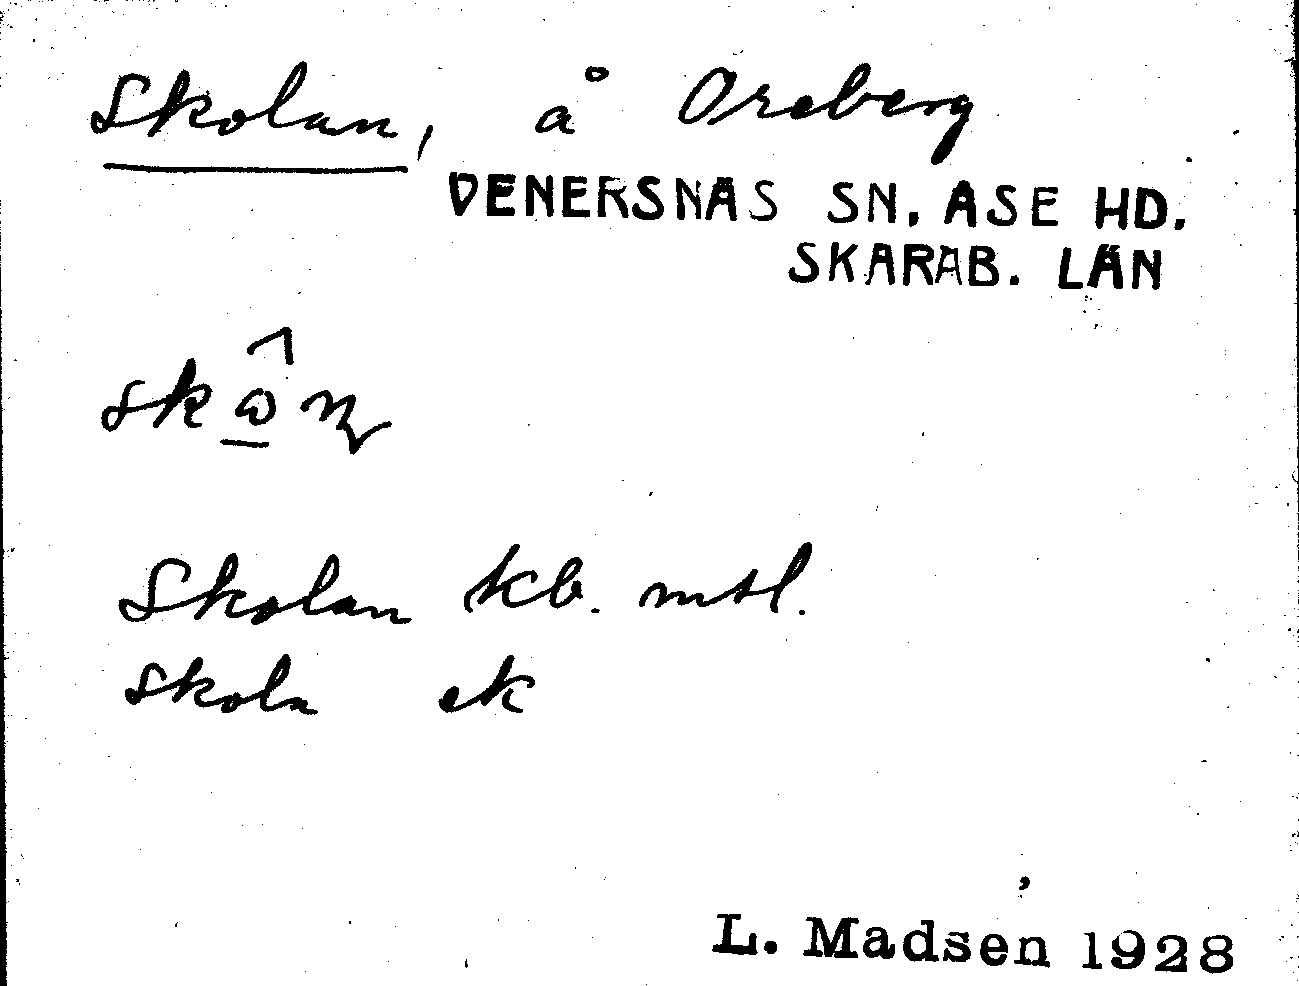 Skolan, å Oreberg
VENERSNÄS SN. ÅSE HD.
SKARAB. LÄN
Skolan kb. mtl.
Skola ek
L. Madsen 1928